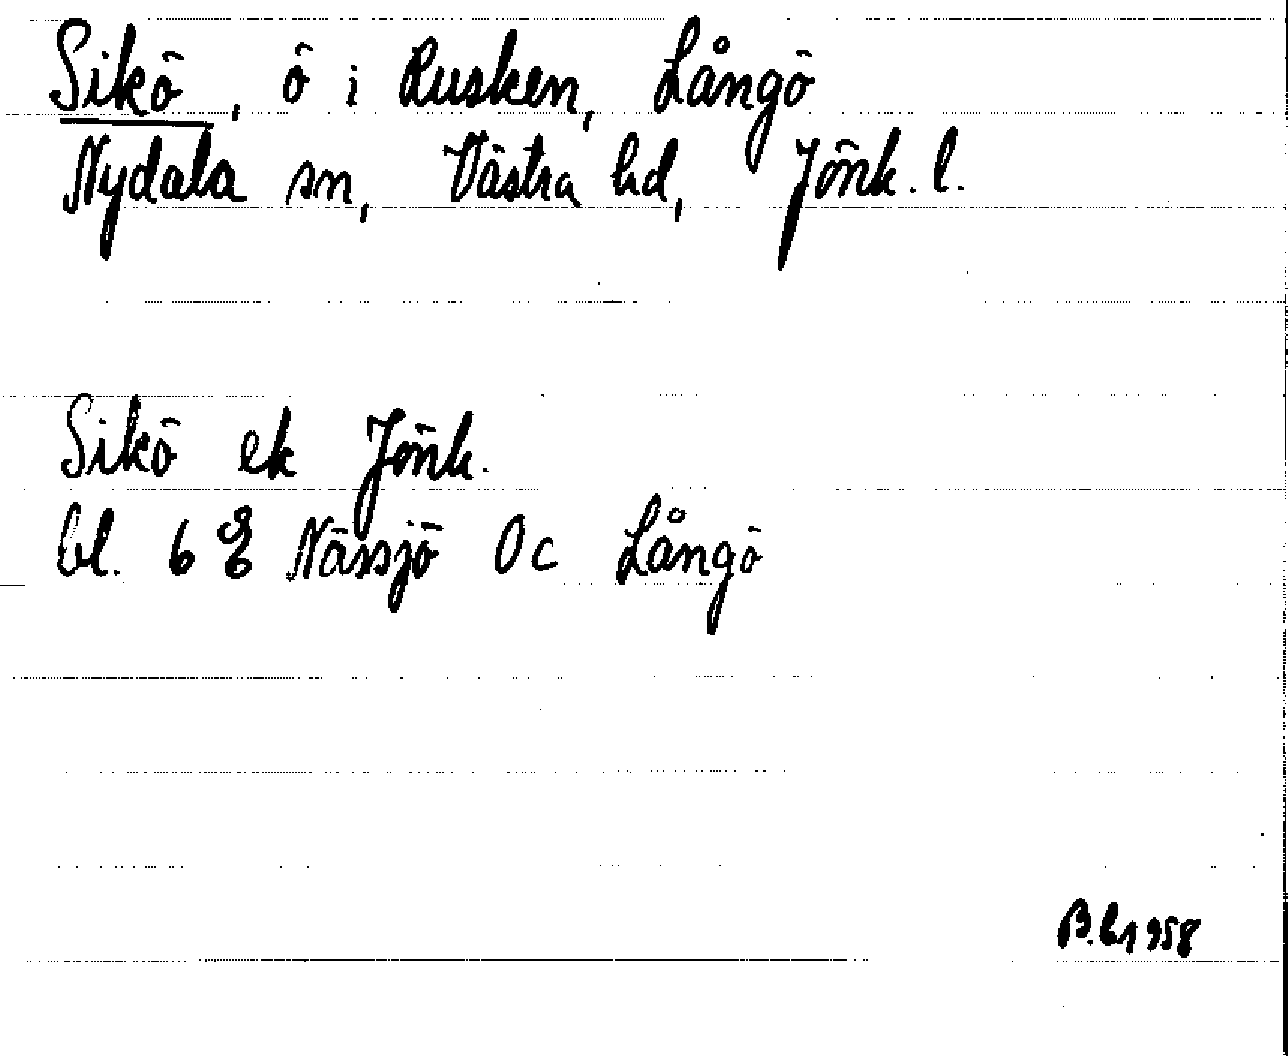 Sikö, ö i Rusken, Långö
Nydala sn, Västra hd, Jönk. l.
Sikö ek Jönk.
bl. 6 E Nässjö Oc Långö
1958